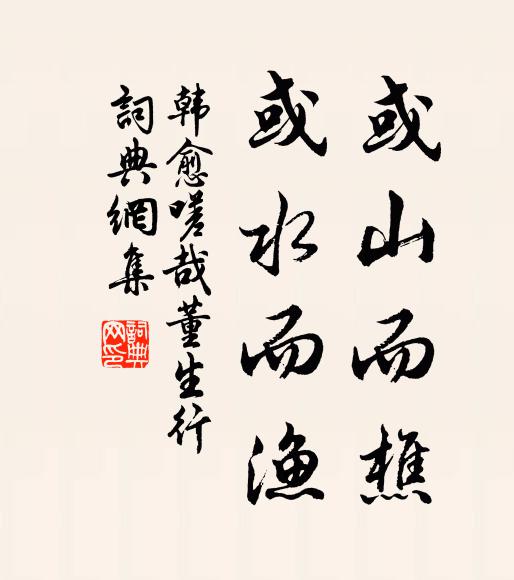 或山而樵
或水而渔
韩愈嗟哉董生行
詞典網集
詞典网印